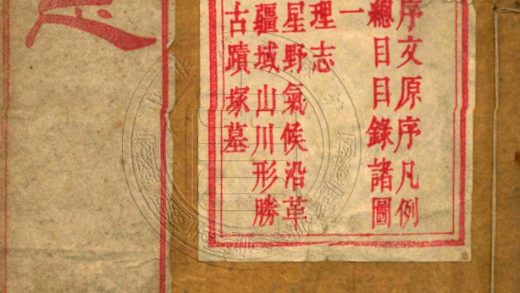 序文原序凡例
總目目錄諸圖
一
理志
星野氣候沿革
疆域山川形勝
古蹟塚墓